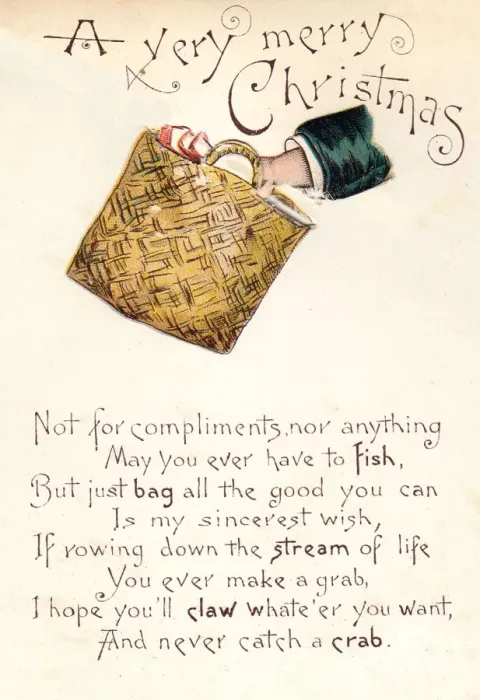 A very merry
Christmas
Not for compliments, nor anything
May you ever have to fish,
But just bag all the good you can
Is my sincerest wish,
If rowing down the stream of life
You ever make a grab,
I hope you'll claw whate'er you want,
And never catch a crab.